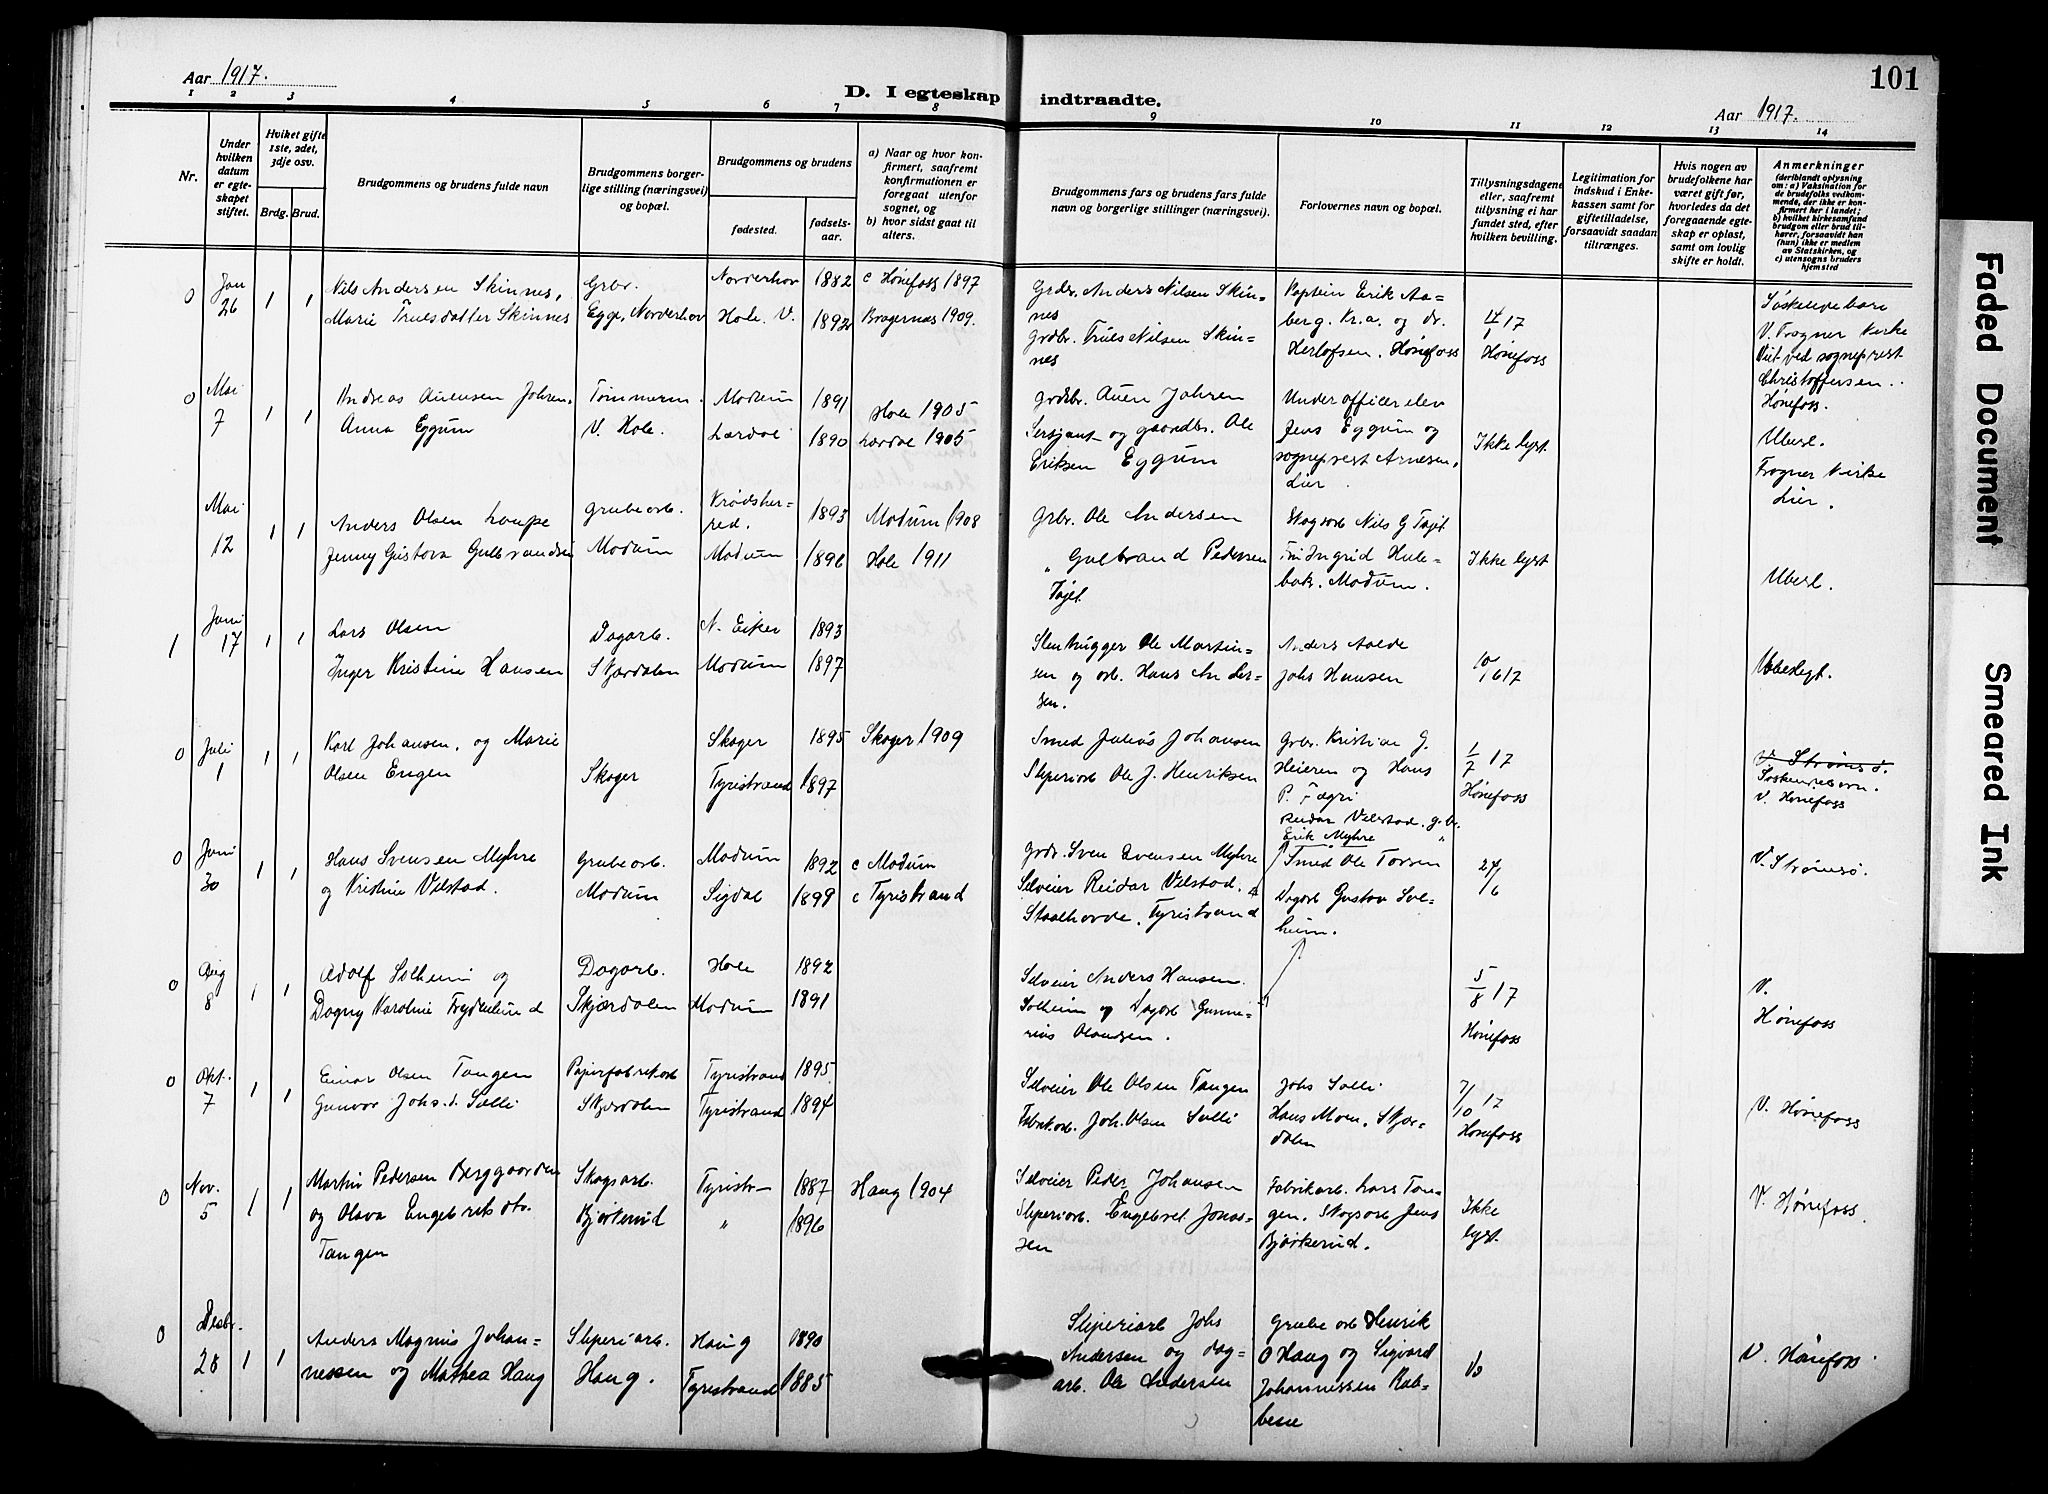 Aar 1917.
D. I egteskap indtraadte.
Aar 1917.
101
1 2 3 4 5 6 7 8 9 10 11 12 13 14
Nr.
Under hvilken datum er egteskapet stiftet.
Hvilket gifte 1ste, 2det, 3dje osv.
Brdg. Brud.
Brudgommens og brudens fulde navn
Brudgommens borgerlige stilling (næringsvei) og bopæl.
Brudgommens og brudens
fødested.
fødselsaar.
a) Naar og hvor konfirmert, saafremt konfirmationen er foregaat utenfor sognet, og
b) hvor sidst gaat til alters.
Brudgommens fars og brudens fars fulde navn og borgerlige stillinger (næringsvei).
Forlovernes navn og bopæl.
Tillysningsdagene eller, saafremt tillysning ei har fundet sted, efter hvilken bevilling.
Legitimation for indskud i Enkekassen samt for giftetilladelse, forsaavidt saadan tiltrænges.
Hvis nogen av brudefolkene har været gift før, hvorledes da det foregaaende egteskap er opløst, samt om lovlig skifte er holdt.
Anmerkninger (deriblandt oplysning om: a) Vaksination for de brudefolks vedkommende, der ikke er konfirmert her i landet; b) hvilket kirkesamfund brudgom eller brud tilhører, forsaavidt han (hun) ikke er medlem av Statskirken, og c) utensogns bruders hjemsted
0 Jan 26 1 1
Nils Andersen Skinnes,
Marie Truesdatter Skinnes
Grbr.
Egge, Norderhov
Norderhov 1882 c Hønefoss 1897
Hole. V. 1892 Bragernes 1909.
Grdbr. Anders Nilsen Skinnes
grdbr. Truls Nilsen Skinnes
Kaptein Erik Aaberg. Kr.a. og dr.
Herlofsen. Hønefoss
14/1 17
Hønefoss
V. Frogner Kirke
Viet ved sogneprest
Christoffersen.
Hønefoss.
0 Mai 7 1 1
Andreas Auensen Jahren.
Anna Eggum
Tømmerm.
V. Hole.
Modum 1891 Hole 1905
Lærdal 1890 Lærdal 1905
grdbr. Auen Jahren
Sersjant og gaardbr. Ole
Eriksen Eggum
Underofficerelev
Jens Eggum og
sogneprest Arnesen,
Lier.
Ikke lyst
Ubesl.
Frogner Kirke
Lier.
Mai 12 1 1
Anders Olsen Laupe
Jenny Gustava Gulbrandsen
grubearb.
Modum
Krødsherred. 1893 Modum 1908
Modum 1896 Hole 1911
Grbr. Ole Andersen
" Gulbrand Pedersen
Tajet
Skogsarb Nils G Tajet
Fru Ingrid Hulebak. Modum.
Ikke lyst
Ubesl.
1 Juni 17 1 1
Lars Olsen
Inger Kristine Hansen
Dagarb.
Skjærdalen
N. Eiker 1893
Modum 1897
Stenhugger Ole Martinsen og arb. Hans Andersen.
Anders Aalde
Johs Hansen
10/6 17
Ubeslegt.
0 Juli 1 1 1
Karl Johansen, og Marie
Olsen Engen
Skoger
Skoger 1895 Skoger 1909
Tyristrand 1897
Smed Julius Johansen
Sliperiarb Ole J. Henriksen
Grbr. Kristian G.
Heieren og Hans
P. Fægri
1/7 17
Hønefoss
V. Strømsø.
Søskendebarn.
V. Hønefoss
0 Juni 30 1 1
Hans Svensen Myhre
og Kristine Vilstad.
Grubearb.
Modum
Modum 1892 c Modum
Sigdal 1899 c Tyristrand
grdbr. Sven Svensen Myhre
Selveier Reidar Vilstad.
Staalhorde. Tyristrand
Reidar Vilstad. g.br.
Erik Myhre "
Smed Ole Torsen
Dagarb Gustav Solheim.
24/6
V. Strømsø.
0 Aug 8 1 1
Adolf Solheim og
Dagny Karoline Frydenlund
Dagarb.
Skjærdalen
Hole 1892
Modum 1891
Selveier Anders Hansen
Solheim og Dagarb Gunnerius Olausen.
5/8 17
Hønefoss
V.
Hønefoss
0 Okt. 7 1 1
Einar Olsen Tangen
Gunvor Johs.d. Solli
Papirfabrikarb
Skjærdalen
Tyristrand 1895
Tyristrand 1894
Selveier Ole Olsen Tangen
Fabrikarb. Joh. Olsen Solli
Johs Solli
Hans Moen, Skjærdalen
7/10 17
Hønefoss
V. Hønefoss
0 Nov. 5 1 1
Martin Pedersen Berggaarden
og Olava Engebretsdtr.
Tangen
Skogsarb.
Bjørkerud
Tyristr- 1887 Haug 1904
" 1896
Selveier Peder Johansen
Sliperiarb. Engebret Jonassen
Fabrikarb. Lars Tangen. Skogsarb Jens
Bjørkerud.
Ikke
lyst.
V. Hønefoss.
0 Desbr. 28 1 1
Anders Magnus Johannessen og Mathea Haug
Sliperiarb.
Haug.
Haug 1890
Tyristrand 1885
Sliperiarb Johs
Andersen og dagarb. Ole Andersen
Grubearb Henrik
O Haug og Sigvard
Johannessen Rabbesve
V. Hønefoss
Faded Document
Smeared Ink